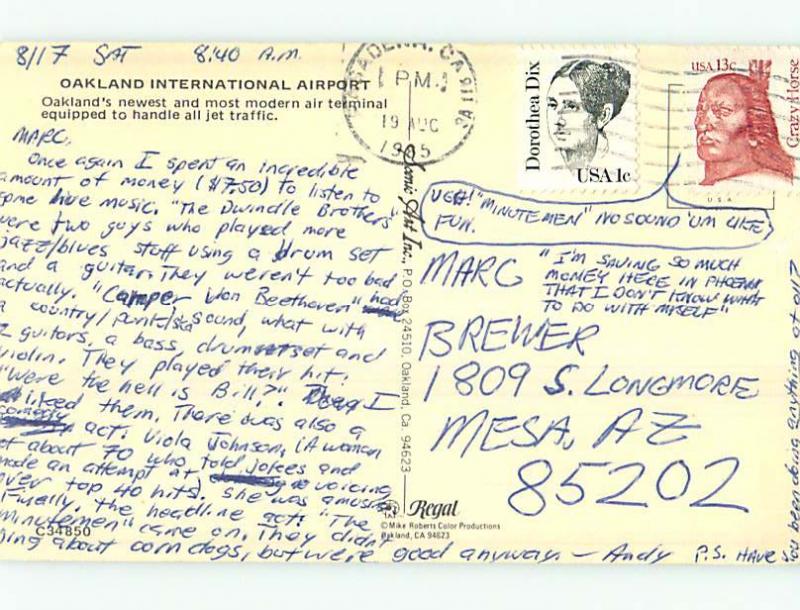 8/17 SAT 8:40 A.M.
OAKLAND INTERNATIONAL AIRPORT
Oakland's newest and most modern air terminal
equipped to handle all jet traffic.
MARC,
Once again I spent an incredible
amount of money ($7.50) to listen to
some live music. "The Dwindle Brothers"
were two guys who played more
jazz/blues stuff using a drum set
and a guitar. They weren't too bad
actually. "Camper Van Beethoven" had
a country/punk/ska sound, what with
2 guitars, a bass, drum set and
violin. They played their hit:
"Were the hell is Bill?". I
liked them. There was also a
comedy act: Viola Johnson, (A woman
of about 70 who told jokes and
made an attempt at voicing
over top 40 hits. She was amusing
Finally, the headline act: "The
Minutemen" came on. They didn't
sing about corn dogs, but were good anyway. — Andy P.S. HAVE
you been doing anything at all?
C34850
Scenic Art Inc., P.O. Box 24510, Oakland, Ca. 94623
Regal
©Mike Roberts Color Productions
Oakland, CA 94623
PASADENA, CA 911
P.M.
19 AUG
1985
Dorothea Dix
USA 1c
USA 13c
Crazy Horse
USA
UGH! "MINUTEMEN" NO SOUND 'UM LIKE
FUN.
"I'M SAVING SO MUCH
MONEY HERE IN PHOENIX
THAT I DON'T KNOW WHAT
TO DO WITH MYSELF"
MARC
BREWER
1809 S. LONGMORE
MESA, AZ
85202